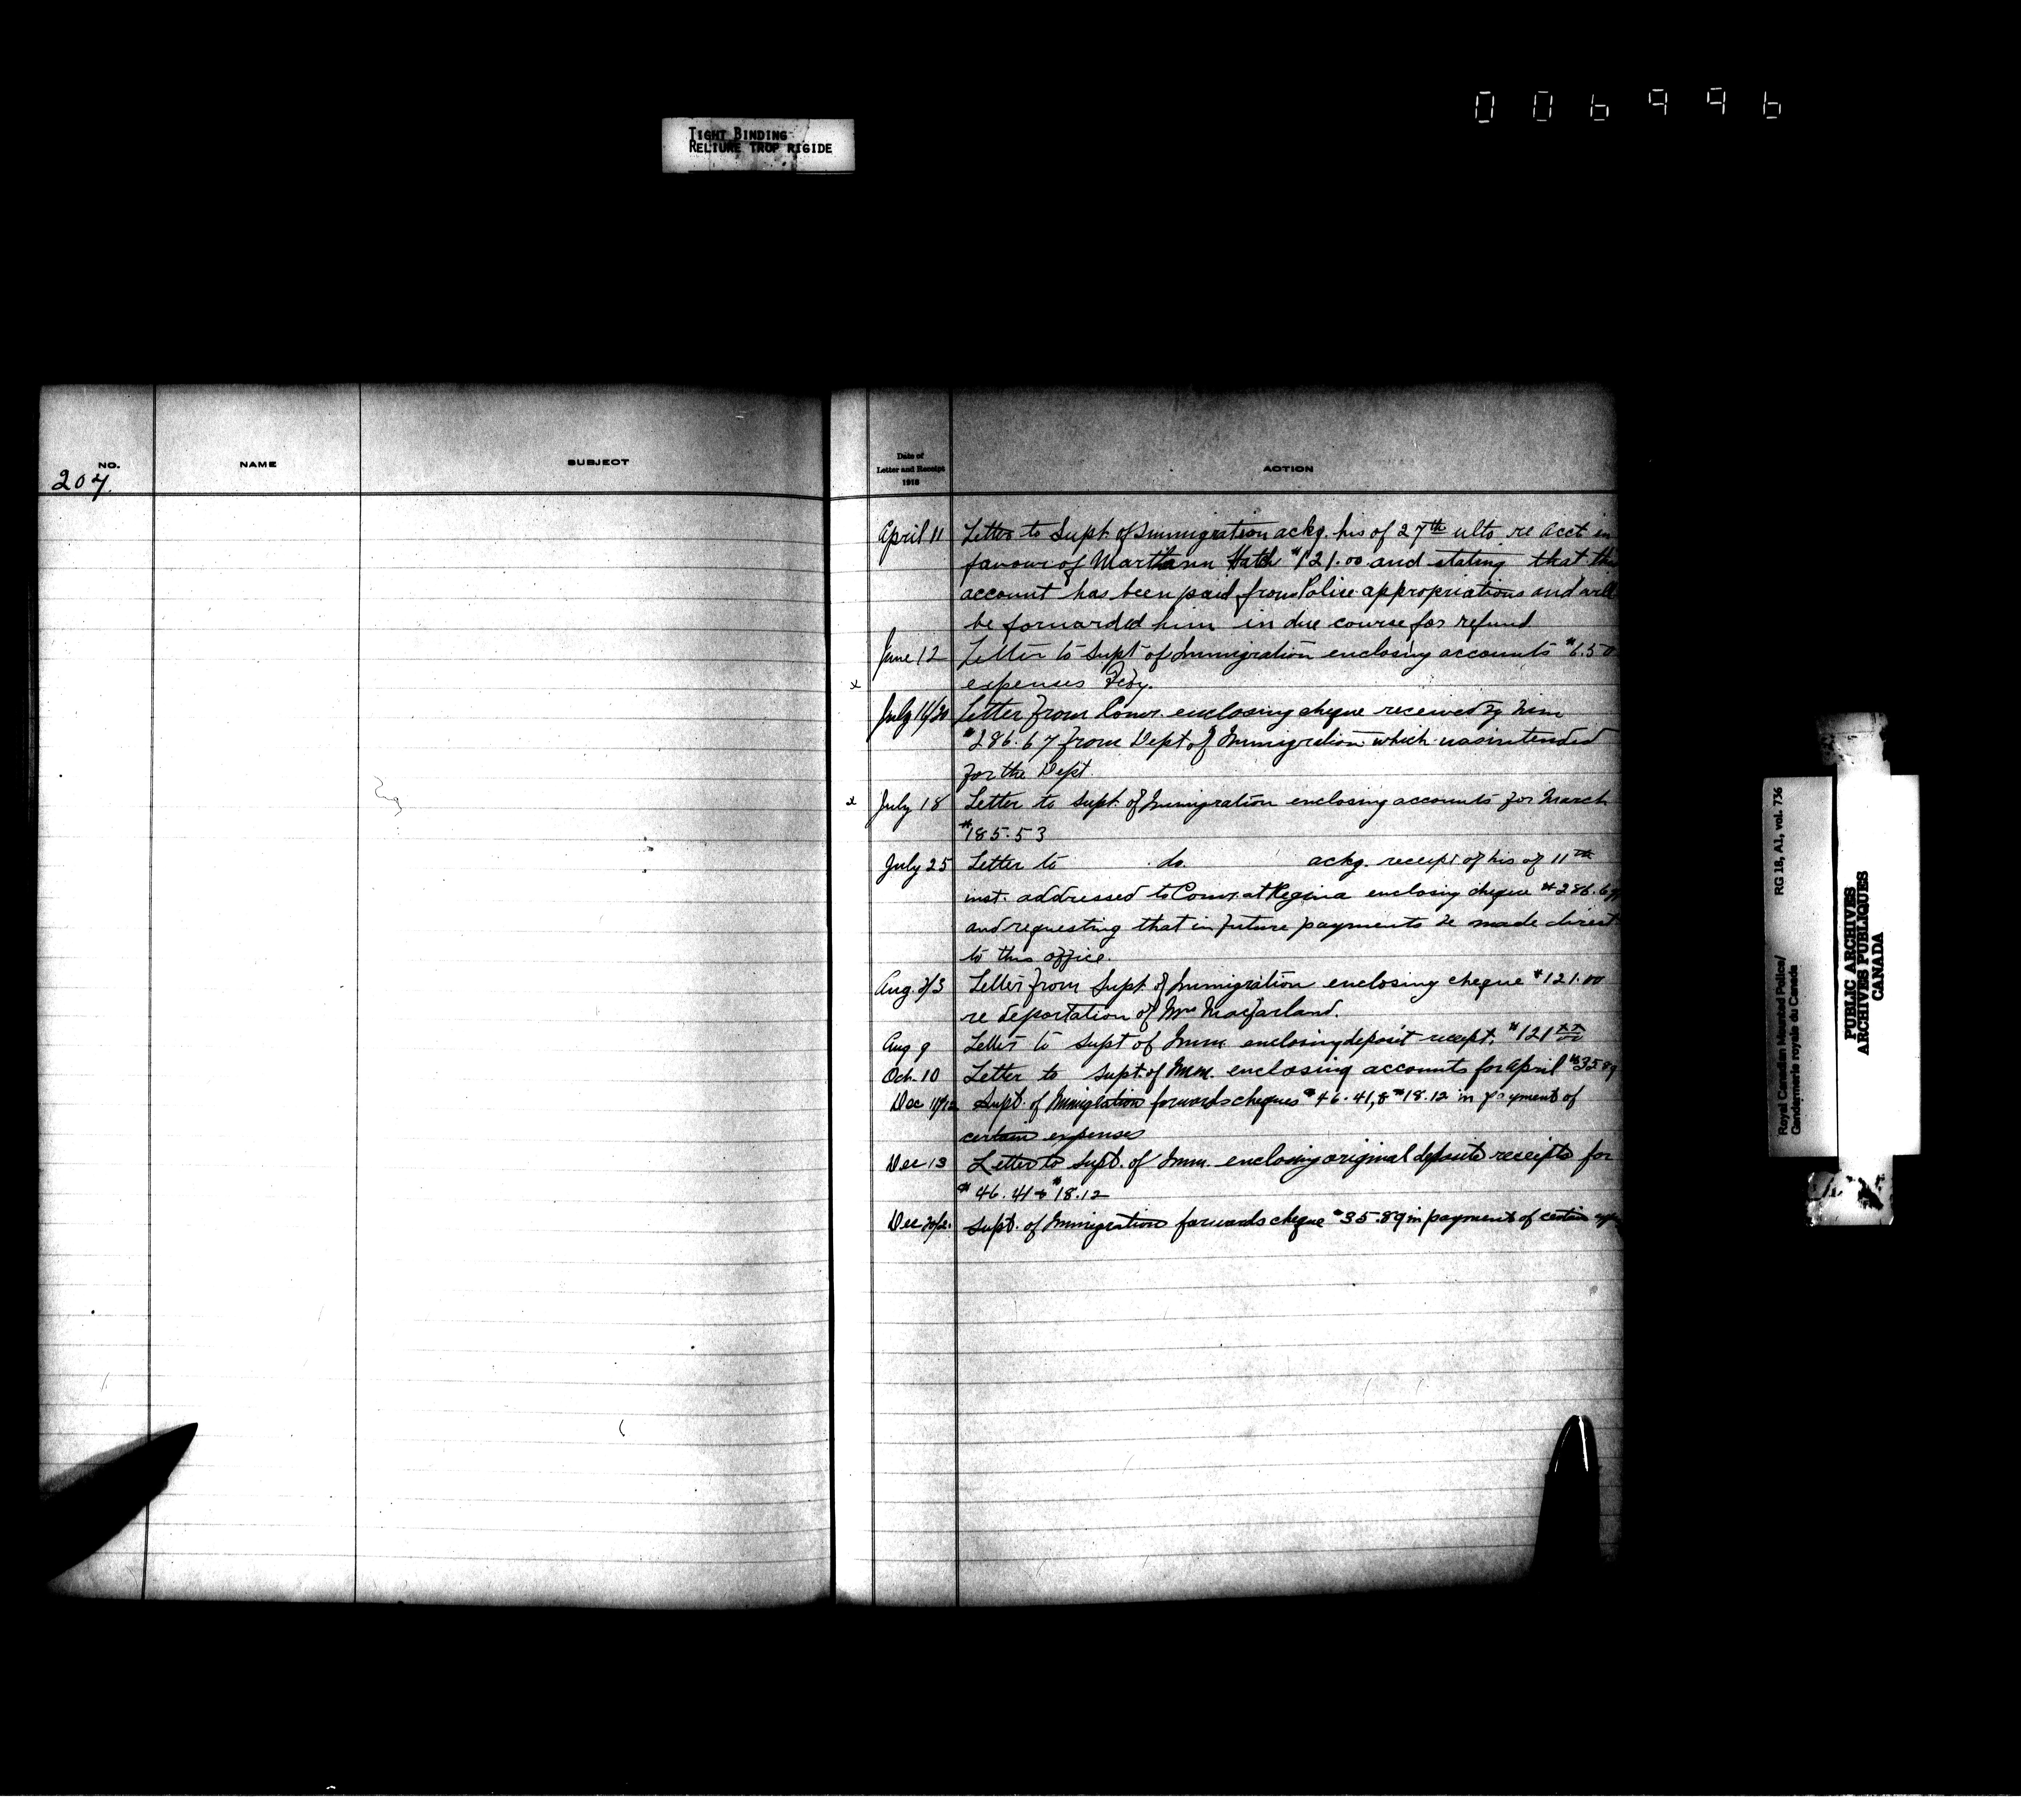 006996
TIGHT BINDING
RELIURE TROP RIGIDE
NO.
NAME
SUBJECT
207.
Date of
Letter and Receipt
1918
ACTION
April 11 Letter to Supt. of Immigration ackg. his of 27th ulto. re acct in
favour of Hatch $121.00 and stating that this
account has been paid from Police appropriations and will
be forwarded him in due course for refund.
June 12 Letter to Supt of Immigration enclosing accounts $6.50
x expenses Feby.
July 16/20 Letter from Comr. enclosing cheque received by him
$286.67 from Dept of Immigration which was intended
for the Dept.
x July 18 Letter to Supt. of Immigration enclosing accounts for March
$185.53
July 25 Letter to do. ackg. receipt of his of 11th
inst. addressed to Comr. at Regina enclosing cheque $286.67
and requesting that in future payments be made direct
to this office.
Aug. 2/3 Letter from Supt. of Immigration enclosing cheque $121.00
re deportation of Mrs Macfarland.
Aug 9 Letter to Supt of Imm. enclosing deposit receipt. $121 xx/00
Oct. 10 Letter to Supt. of Imm. enclosing accounts for April $35.89
Dec 11/12 Supt. of Immigration forwards cheques $46.41, & $18.12 in payment of
certain expenses
Dec 13 Letter to Supt. of Imm. enclosing original deposite receipts for
$46.41 & $18.12
Dec 20/21. Supt. of Immigration forwards cheque $35.89 in payment of certain exp
Royal Canadian Mounted Police/ RG 18, A1, vol. 736
Gendarmerie royale du Canada
PUBLIC ARCHIVES
ARCHIVES PUBLIQUES
CANADA